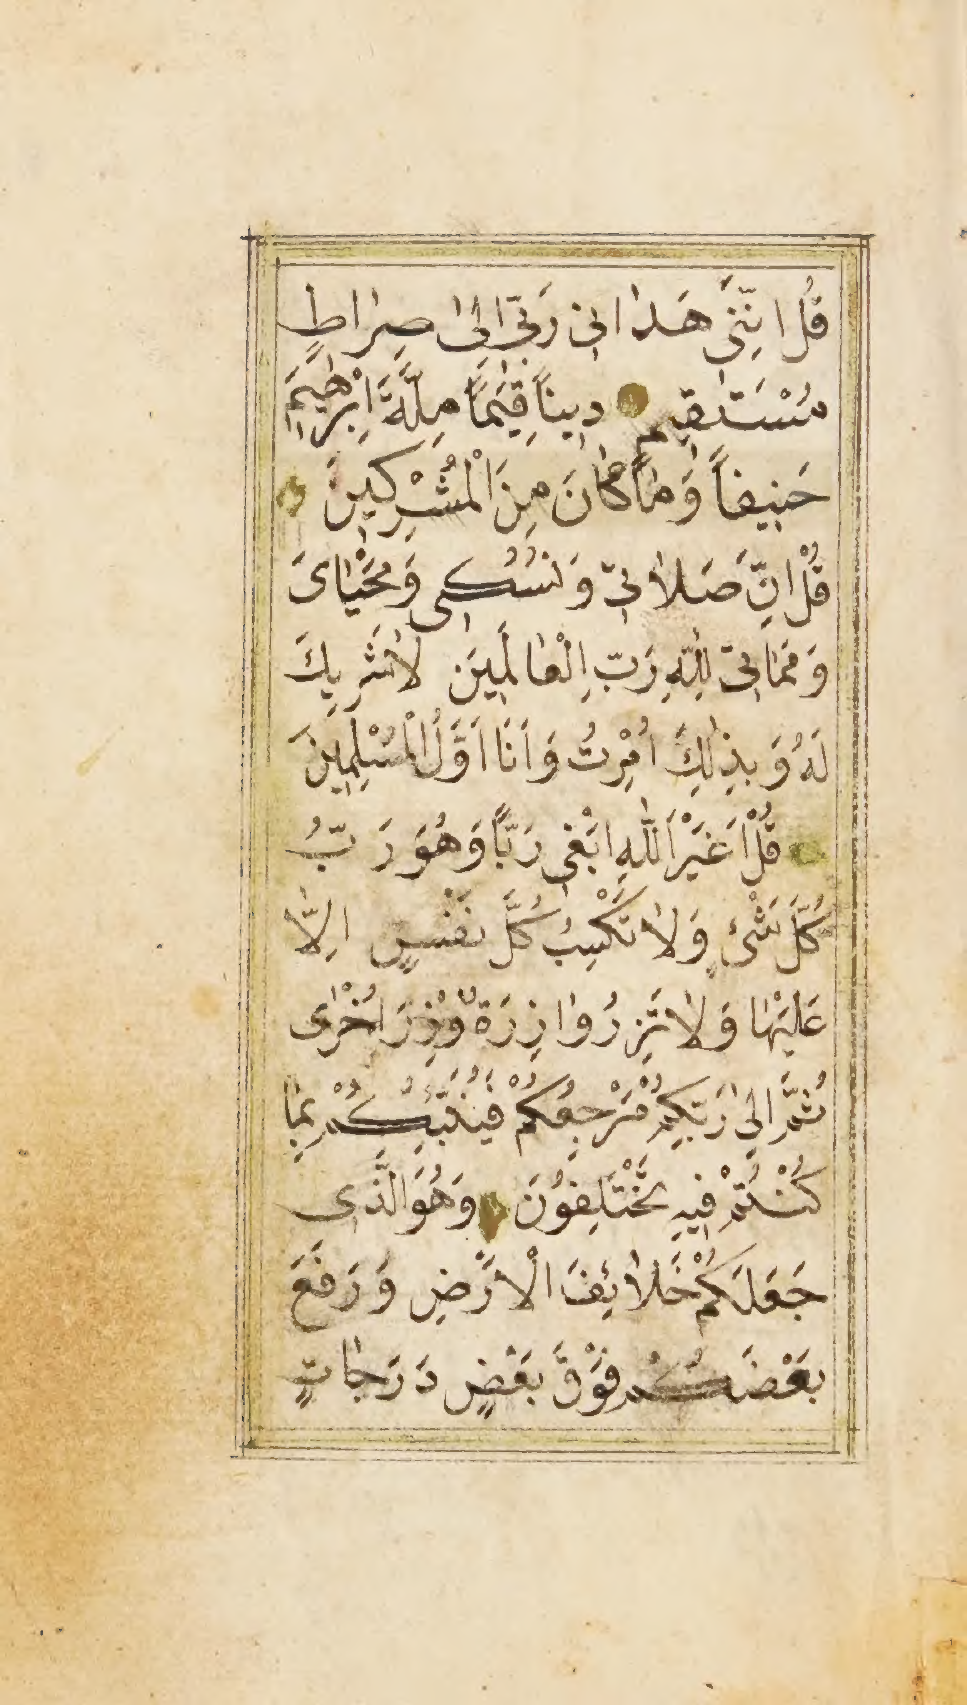 قُل اِنَّنِى هَدانى رَبّى اِلىٰ صِراطٍ
مُسْتَقيمٍ دينًا قِيَمًا مِلَّةَ اِبْرٰهيمَ
حَنيفًا وَمٰا كٰانَ مِنَ الْمُشْرِكينَ
قُلْ اِنَّ صَلاٰتىّ وَنُسُكى وَمَحْيٰاىَ
وَمَمٰاتىّ لِلّٰهِ رَبِّ الْعٰالَمينَ لاٰ شَريكَ
لَهُ وَبِذٰلِكَ اُمِرْتُ وَاَنَا اَوَّلُ الْمُسْلِمينَ
قُلْ اَغَيْرَ اللّٰهِ اَبْغى رَبًّا وَهُوَ رَبُّ
كُلَّ شَىْءٍ وَلاٰ تَكْسِبُ كُلَّ نَفْسٍ اِلّٰا
عَلَيْهٰا وَلاٰ تَزِرُ وٰازِرَةٌ وِزْرَ اُخْرٰى
ثُمَّ اِلىٰ رَبِّكُمْ مَرْجِعُكُمْ فَيُنَبِّئُكُمْ بِمٰا
كُنْتُمْ فيهِ تَخْتَلِفُونَ وَهُوَ الَّذى
جَعَلَكُمْ خَلاٰئِفَ الْاَرْضِ وَرَفَعَ
بَعْضَكُمْ فَوْقَ بَعْضٍ دَرَجٰاتٍ